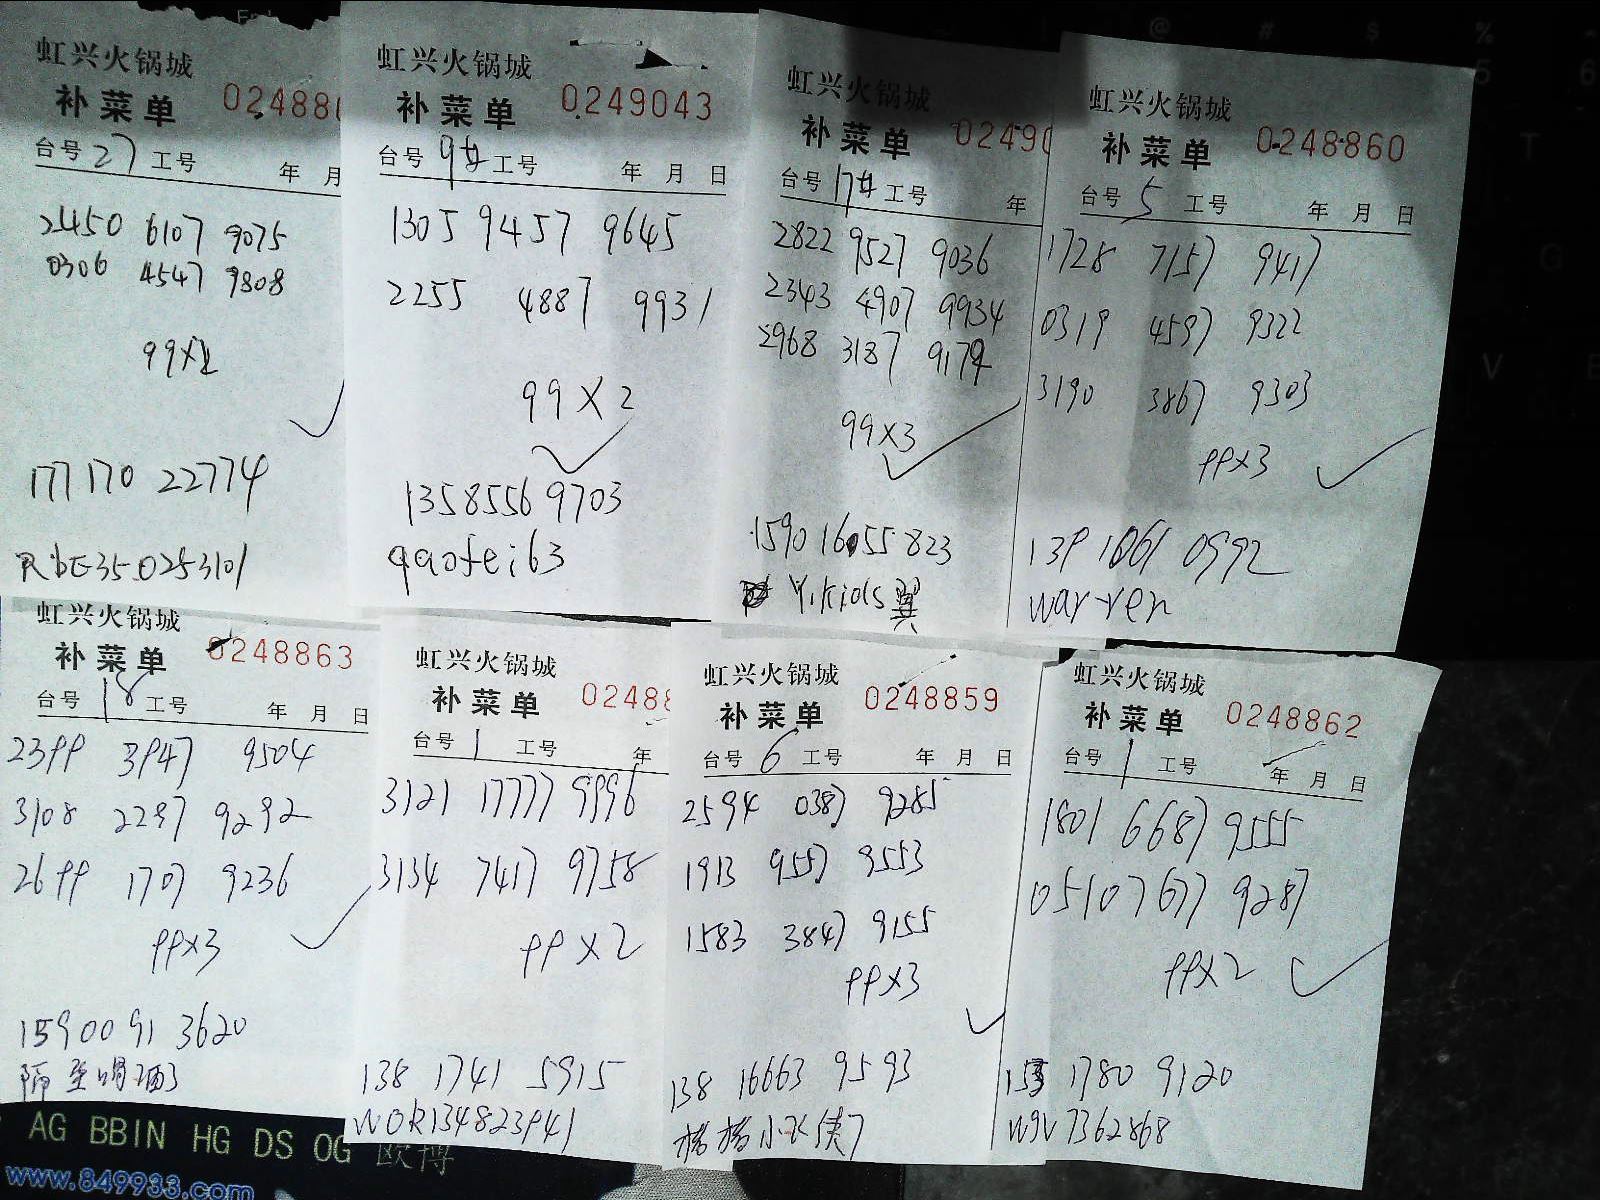 虹兴火锅城
补菜单 024886
台号 27 工号 年 月
2450 6107 9075
0306 4547 9808
99X2
177170 22774
RbE350253101
虹兴火锅城
补菜单 0249043
台号 9# 工号 年 月 日
1305 9457 9645
2255 4887 9931
99X2
1358556 9703
gaofei63
虹兴火锅城
补菜单 02490
台号 17# 工号 年
2822 9527 9036
2343 4907 9934
2968 3187 9179
99X3
1590 16055 823
翼
虹兴火锅城
补菜单 0248860
台号 5 工号 年 月 日
1728 7157 9417
0319 4597 9322
3190 3867 9303
99X3
139 1061 0992
warren
虹兴火锅城
补菜单 0248863
台号 18 工号 年 月 日
2399 3947 9504
3108 2297 9292
2699 1707 9236
99X3
15900 91 3620
虹兴火锅城
补菜单 02488
台号 1 工号 年
3121 17777 9996
3134 7417 9758
99X2
138 1741 5915
WOR134823941
虹兴火锅城
补菜单 0248859
台号 6 工号 年 月 日
2594 0387 9285
1913 9557 9553
1583 3847 9155
99X3
138 16663 9593
虹兴火锅城
补菜单 0248862
台号 1 工号 年 月 日
1801 6687 9555
0510 7677 9287
99X2
153 1780 9120
wgv7362868
AG BBIN HG DS OG 欧博
www.849933.com